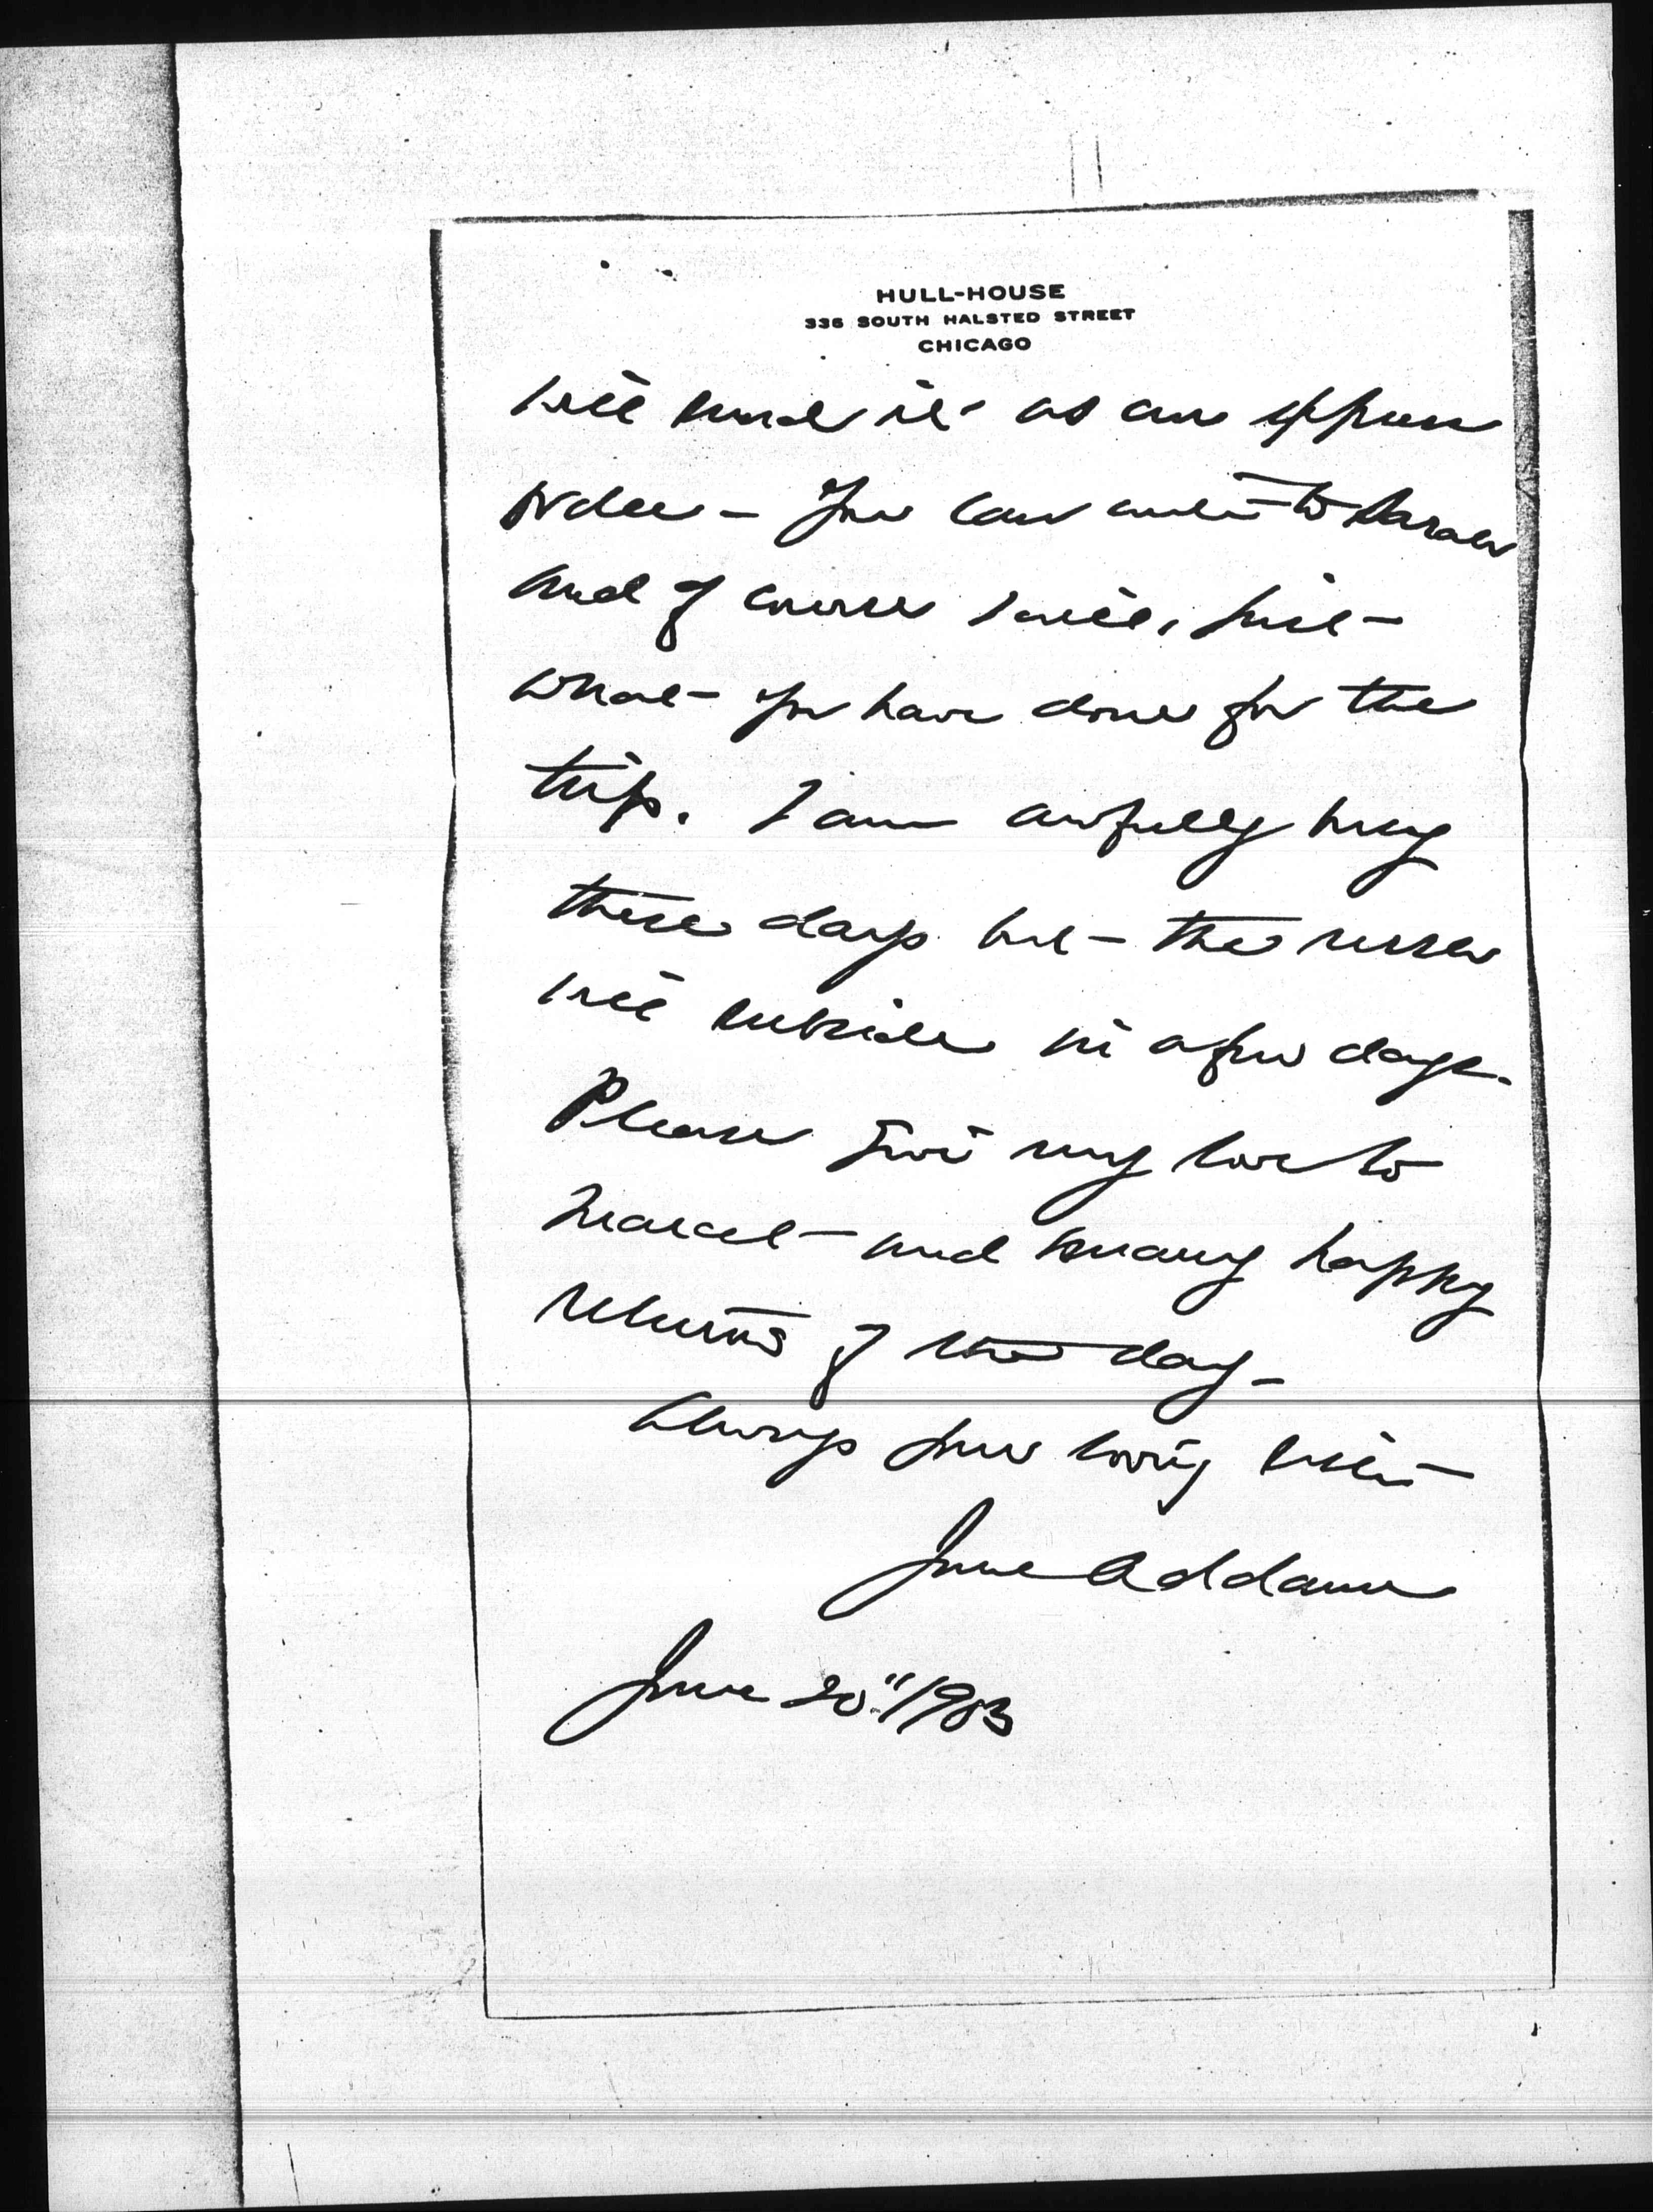 HULL-HOUSE
335 SOUTH HALSTED STREET
CHICAGO
will send it as an express
order — You can write to Sarah
and of course I will, just
what you have done for the
trip. I am awfully busy
these days but the rush
will subside in a few days.
Please give my love to
Marcet and many happy
returns of the day —
Always your loving sister
Jane Addams
June 20" 1903